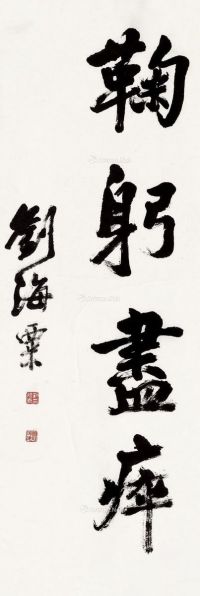 鞠躬盡瘁
劉海粟